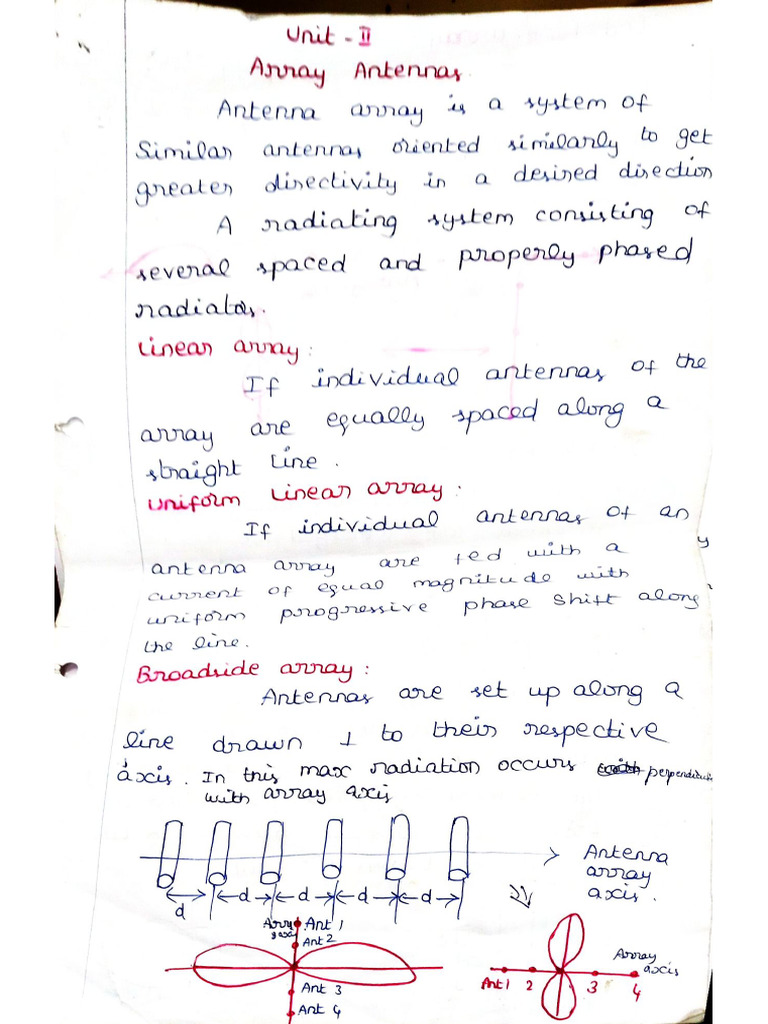 Unit - II
Array Antennas.
Antenna array is a system of
Similar antennas oriented similarly to get
greater directivity in a desired direction
A radiating system consisting of
several spaced and properly phased
radiators.
Linear array:
If individual antennas of the
array are equally spaced along a
straight line.
Uniform Linear array:
If individual antennas of an
antenna array are fed with a
current of equal magnitude with
uniform progressive phase shift along
the line.
Broadside array:
Antennas are set up along a
line drawn ⊥ to their respective
axis. In this max radiation occurs
with array axis
Antenna
array
axis.
d d d d d d
Array Ant 1
axis Ant 2
Ant 3
Ant 4
Array
axis
Ant 1 2 3 4